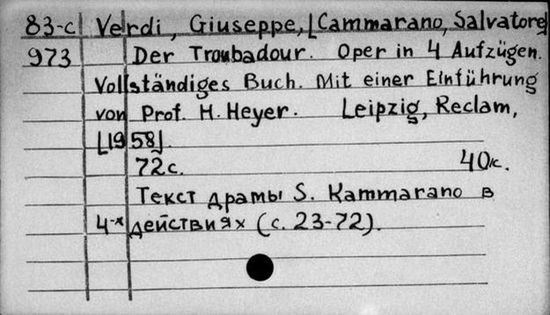 83-с Verdi, Giuseppe, [Cammarano, Salvatore]
973 Der Troubadour. Oper in 4 Aufzügen.
Vollständiges Buch. Mit einer Einführung
von Prof. H. Heyer. Leipzig, Reclam,
[1958].
72 с. 40к.
Текст драмы S. Kammarano в
4-х действиях (с. 23-72).